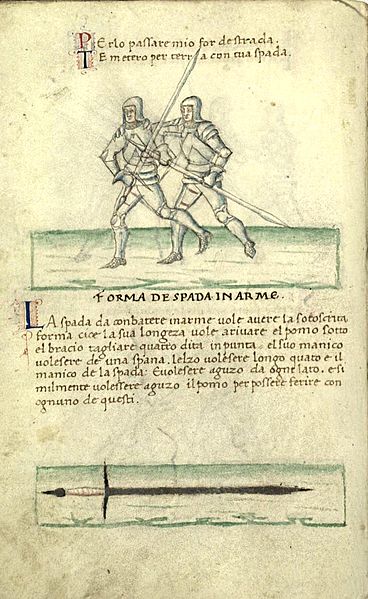 PErlo passare mio for de strada.
TE metero per terra con tua spada.
FORMA DE SPADA IN ARME.
LA spada da conbatere in arme vole avere la sotoscrita
forma cioe la sua longeza vole arivare el pomo sotto
el bracio tagliare quatro dita in punta. el suo manico
volesere de una spana. lelzo volesere longo quato e il
manico de la spada: Evolesere aguzo da ogne lato. e si
milmente volessere aguzo il pomo per possere ferire con
ognuno de questi.